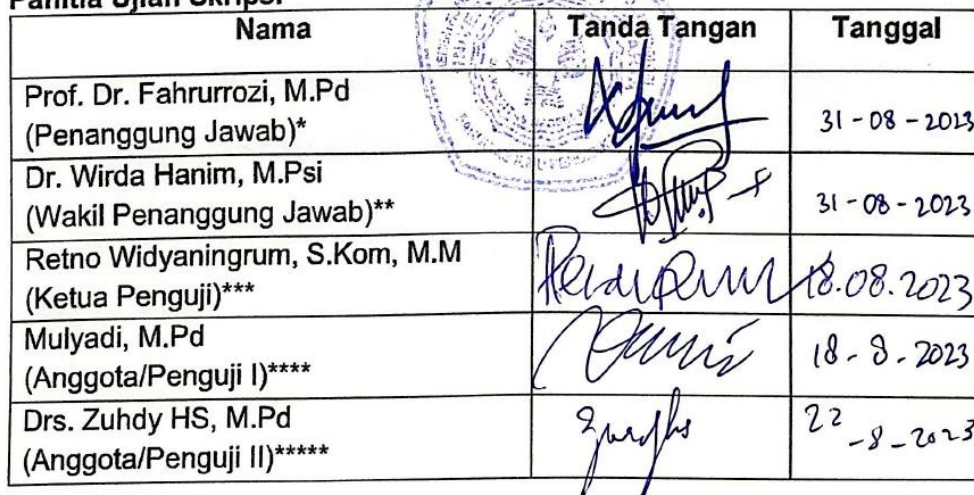 Panitia Ujian Skripsi
Nama Tanda Tangan Tanggal
Prof. Dr. Fahrurrozi, M.Pd
(Penanggung Jawab)* 31-08-2023
Dr. Wirda Hanim, M.Psi
(Wakil Penanggung Jawab)** 31-08-2023
Retno Widyaningrum, S.Kom, M.M
(Ketua Penguji)*** 18.08.2023
Mulyadi, M.Pd
(Anggota/Penguji I)**** 18-8-2023
Drs. Zuhdy HS, M.Pd
(Anggota/Penguji II)***** 22-8-2023